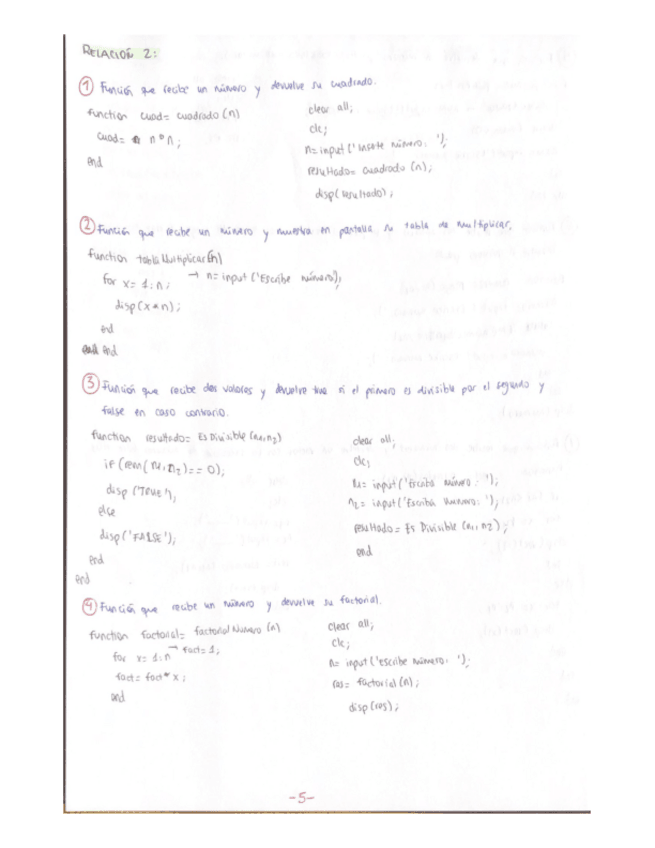 RELACIÓN 2:
① Función que recibe un número y devuelve su cuadrado.
function cuad= cuadrado (n)
cuad= n*n;
end
clear all;
clc;
n=input('Inserte número: ');
resultado= cuadrado (n);
disp(resultado);
② Función que recibe un número y muestra en pantalla su tabla de multiplicar.
function tablaMultiplicar(n)
for x= 1:n; → n=input ('Escribe número');
disp(x*n);
end
end
③ Función que recibe dos valores y devuelve true si el primero es divisible por el segundo y
false en caso contrario.
function resultado= EsDivisible (n1,n2)
if (rem(n1,n2)==0);
disp ('TRUE');
else
disp('FALSE');
end
end
clear all;
clc;
n1= input('Escriba número: ');
n2= input('Escriba número: ');
resultado= EsDivisible (n1,n2);
end
④ Función que recibe un número y devuelve su factorial.
function factorial= factorialNumero (n)
for x= 1:n → fact=1;
fact= fact*x;
end
clear all;
clc;
n= input('escribe número: ');
res= factorial(n);
disp(res);
-5-